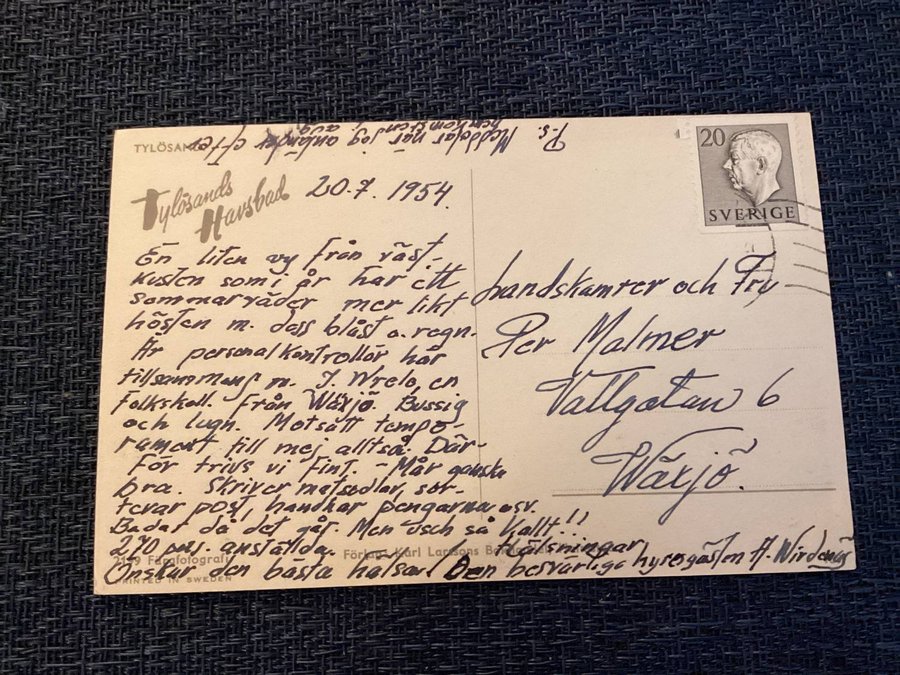 P.s. Meddelar när jag anländer efter
TYLÖSAND
Tylösands
Havsbad
20.7. 1954.
20
SVERIGE
En liten vy från väst-
kusten som i år har ett
sommarväder mer likt
hösten m. dess blåst o. regn.
Är personalkontrollör här
tillsammans m. J. Wrelo, en
folkskoll. från Wäxjö. Bussig
och lugn. Motsatt tempe-
rament till mej alltså. Där-
för trivs vi fint. – Mår ganska
bra. Skriver matsedlar, sor-
terar post, handhar pengarna osv.
Badar då det går. Men usch så kallt!!
270 pers. anställda. Hälsningar
Önskar den bästa hälsa! Den besvärlige hyresgästen A. Wirdenäs
Landskamrer och Fru
Per Malmer
Vallgatan 6
Wäxjö.
2199 Färgfotografi
Förlag: Karl Larssons
PRINTED IN SWEDEN